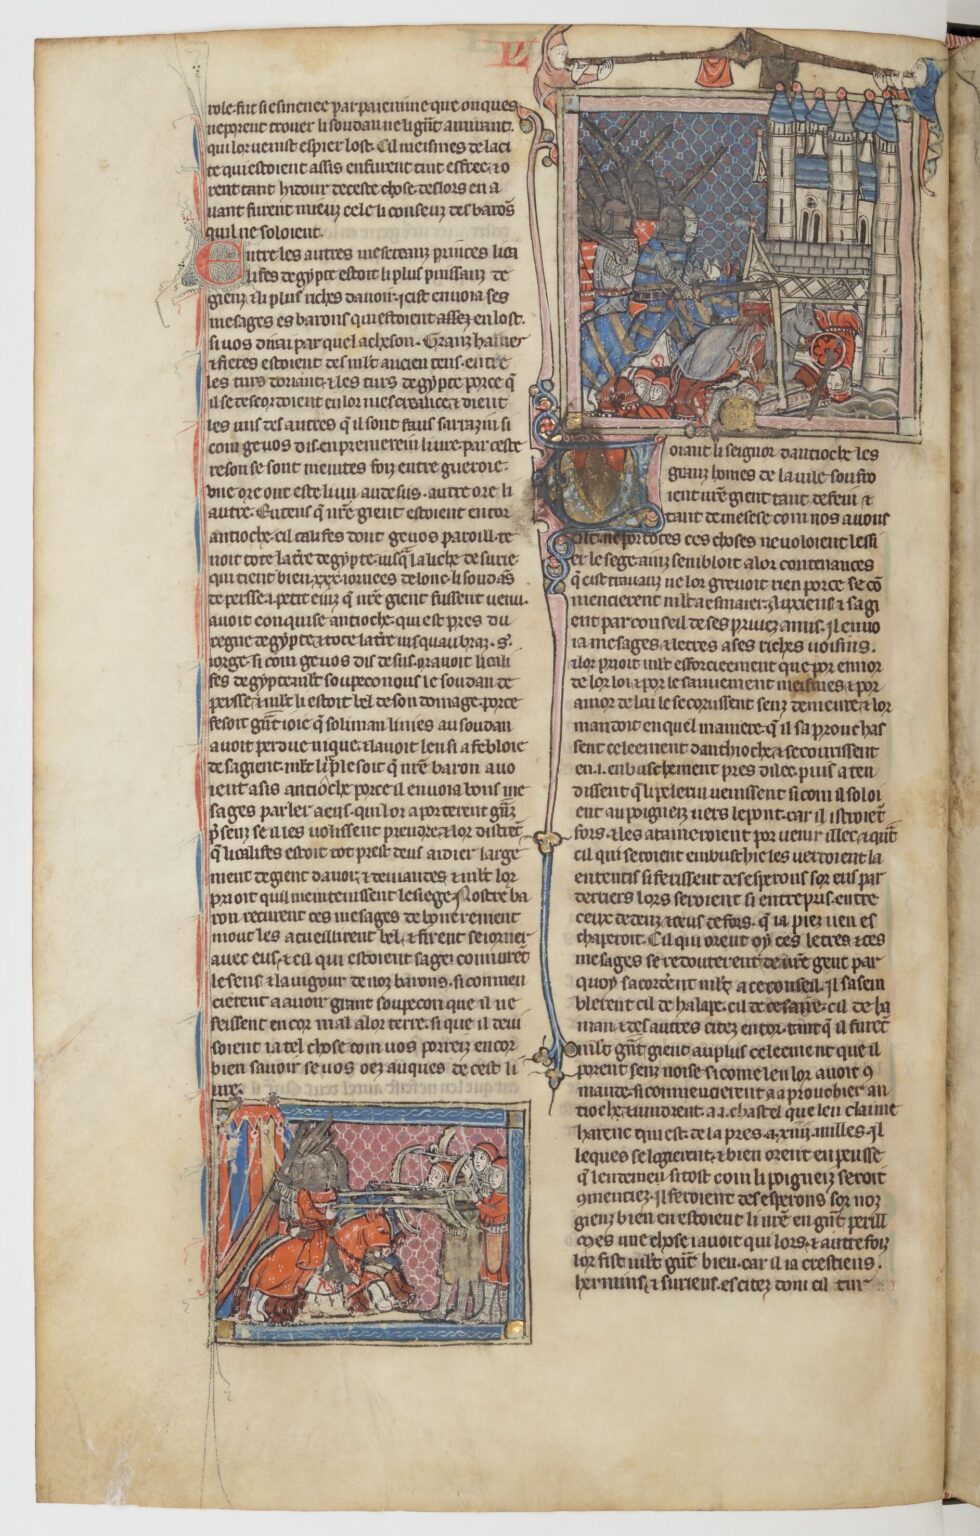 L
role. fut si esmenee par paienime que onques
ne porent trover li soudan ne li gñt amirant.
qui lor venist espier lost. Cil meismes de la ci
te qui estoient assis en furent tint esfree. ⁊ o
rent tant hidour de ceste chose. des lors en a
vant furent mieuz cele li conseuz des barõs
quil ne soloient.
Entre les autres mescreanz princes li ca
lifes degypte estoit li plus puissanz de
genz. ⁊ li plus riches davoir. icist envoia ses
mesages es barons qui estoient assez en lost.
si vos dirai par quel acheson. Granz haines
⁊ fieres estoient des mlt ancien tens. entre
les turs doriant. ⁊ les turs degypte. porce q̃
il se descordoient en lor mescreance. ⁊ dient
les uns des autres q̃ il sont faus sarrazin si
com ge vos dis en premerein livre. par ceste
reson se sont meintes foiz entre guerroie.
une ore ont este li un au desus. autre ore li
autre. En tens q̃ nr̃e gient estoient entor
antioche. cil califes dont ge vos paroill. te
noit tote la t̃re degypte. iusq̃ a la liche de surie
qui tient bien .xxx. iornees de lonc. li soudãs
de persse a petit einz q̃ nr̃e gient fussent venu.
avoit conquise antioche. qui est pres du
regne degypte. ⁊ tote la t̃re iusquau braz .s̃.
iorge. si com ge vos dis desus. mavoit li cali
fes degypte mlt soupeconous le soudan de
persse. ⁊ mlt li estoit bel de son domage. porce
fesoit gñt ioie q̃ soliman li nies au soudan
avoit perdue nique. ⁊ lavoit len si afebloie
de sa gient. mlt li plesoit q̃ nr̃e baron avo
ient asis antioche porce il envoia bons me
sages parler a eus. qui lor aporterent gñz
p̃senz se il les volissent prendre. ⁊ lor distrẽt
q̃ li califes estoit tot prest deus aidier large
ment de gient davoir. ⁊ de viandes. ⁊ mlt lor
prioit quil meintenissent le siege. Nostre ba
ron recurent ces mesages debonerement
mout les acueillirent bel. ⁊ firent seiorner
avec eus. ⁊ cil qui estoient sage. conurẽt
le sens. ⁊ la vigour de noz barons. si comen
cierent a avoir grant soupecon que il ne
feissent encor mal a lor terre. si que il devi
soient ia tel chose com vos porreiz encor
bien savoir se vos oez auques de cest li
vre.
Voiant li seignor dantioche les
granz homes de la vile. soufro
ient nr̃e gient tant de fein ⁊
tant de mesese com nos avons
dit. ne por totes ces choses ne voloient lessi
er le sege. ainz sembloit a lor contenances
q̃ cist travauz ne lor grevoit rien porce se cõ
mencierent mlt a esmaier. Auxiens. ⁊ sa gi
ent par conseil de ses privez amis. il envo
ia mesages. ⁊ letres a ses riches voisins.
⁊ lor prioit mlt efforcieement que por ennor
de lor loi. ⁊ por le sauvement meismes. ⁊ por
amor de lui le secorussent senz demeure. ⁊ lor
mandoit en quel maniere. q̃ il saprouchas
sent celeement danthioche. ⁊ secourissent
en .i. enbuschement pres dilec. puis aten
dissent q̃ li pelerin venissent si com il soloi
ent au poigneiz vers le pont. car il istroiẽt
fors. ⁊ les ataineroient por venir illec. ⁊ qñt
cil qui seroient enbuschie les verroient la
ententis si ferissent des esperons sor eus par
derriers lors seroient si entrepris. entre
ceux dedenz. ⁊ ceus defors. q̃ ia piez nen es
chaperoit. Cil qui orent oy ces letres ⁊ ces
mesages se redouterent de nr̃e gent par
quoy sacorderẽt mlt a ce conseil. Il sasem
blerent cil de halape. cil de cesaire. cil de ha
man. ⁊ des autres citez entor. tant q̃ il furẽt
mlt gñt gient au plus celeement que il
porent senz noise. si come len lor avoit 9
mande. si commencierent a aprouchier an
tioche. ⁊ vindrent a .i. chastel que len claime
harenc qui est de la pres a .xiiij. milles. Il
leques se logierent. ⁊ bien orent enpensse
q̃ lendemein sitost com li poigneiz seroit
9menciez. il feroient des esperons sor noz
gienz bien en estoient li nr̃e en gñt perill
Mes une chose i avoit qui lors. ⁊ autre foiz
lor fist mlt gñt bien. car il i a crestiens.
hermins. ⁊ suriens. es citez dont cil tur